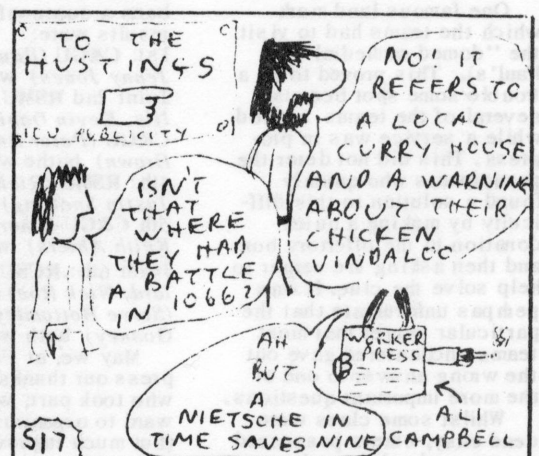 I.C. THE
HUSTINGS
ICU PUBLICITY
ISN'T
THAT
WHERE
THEY HAD
A BATTLE
IN 1066?
NO, IT
REFERS TO
A
CURRY HOUSE
AND A WARNING
ABOUT THEIR
CHICKEN
VINDALOO
AH
BUT
A
NIETSCHE IN
TIME SAVES NINE
WORKER
PRESS
AL
CAMPBELL